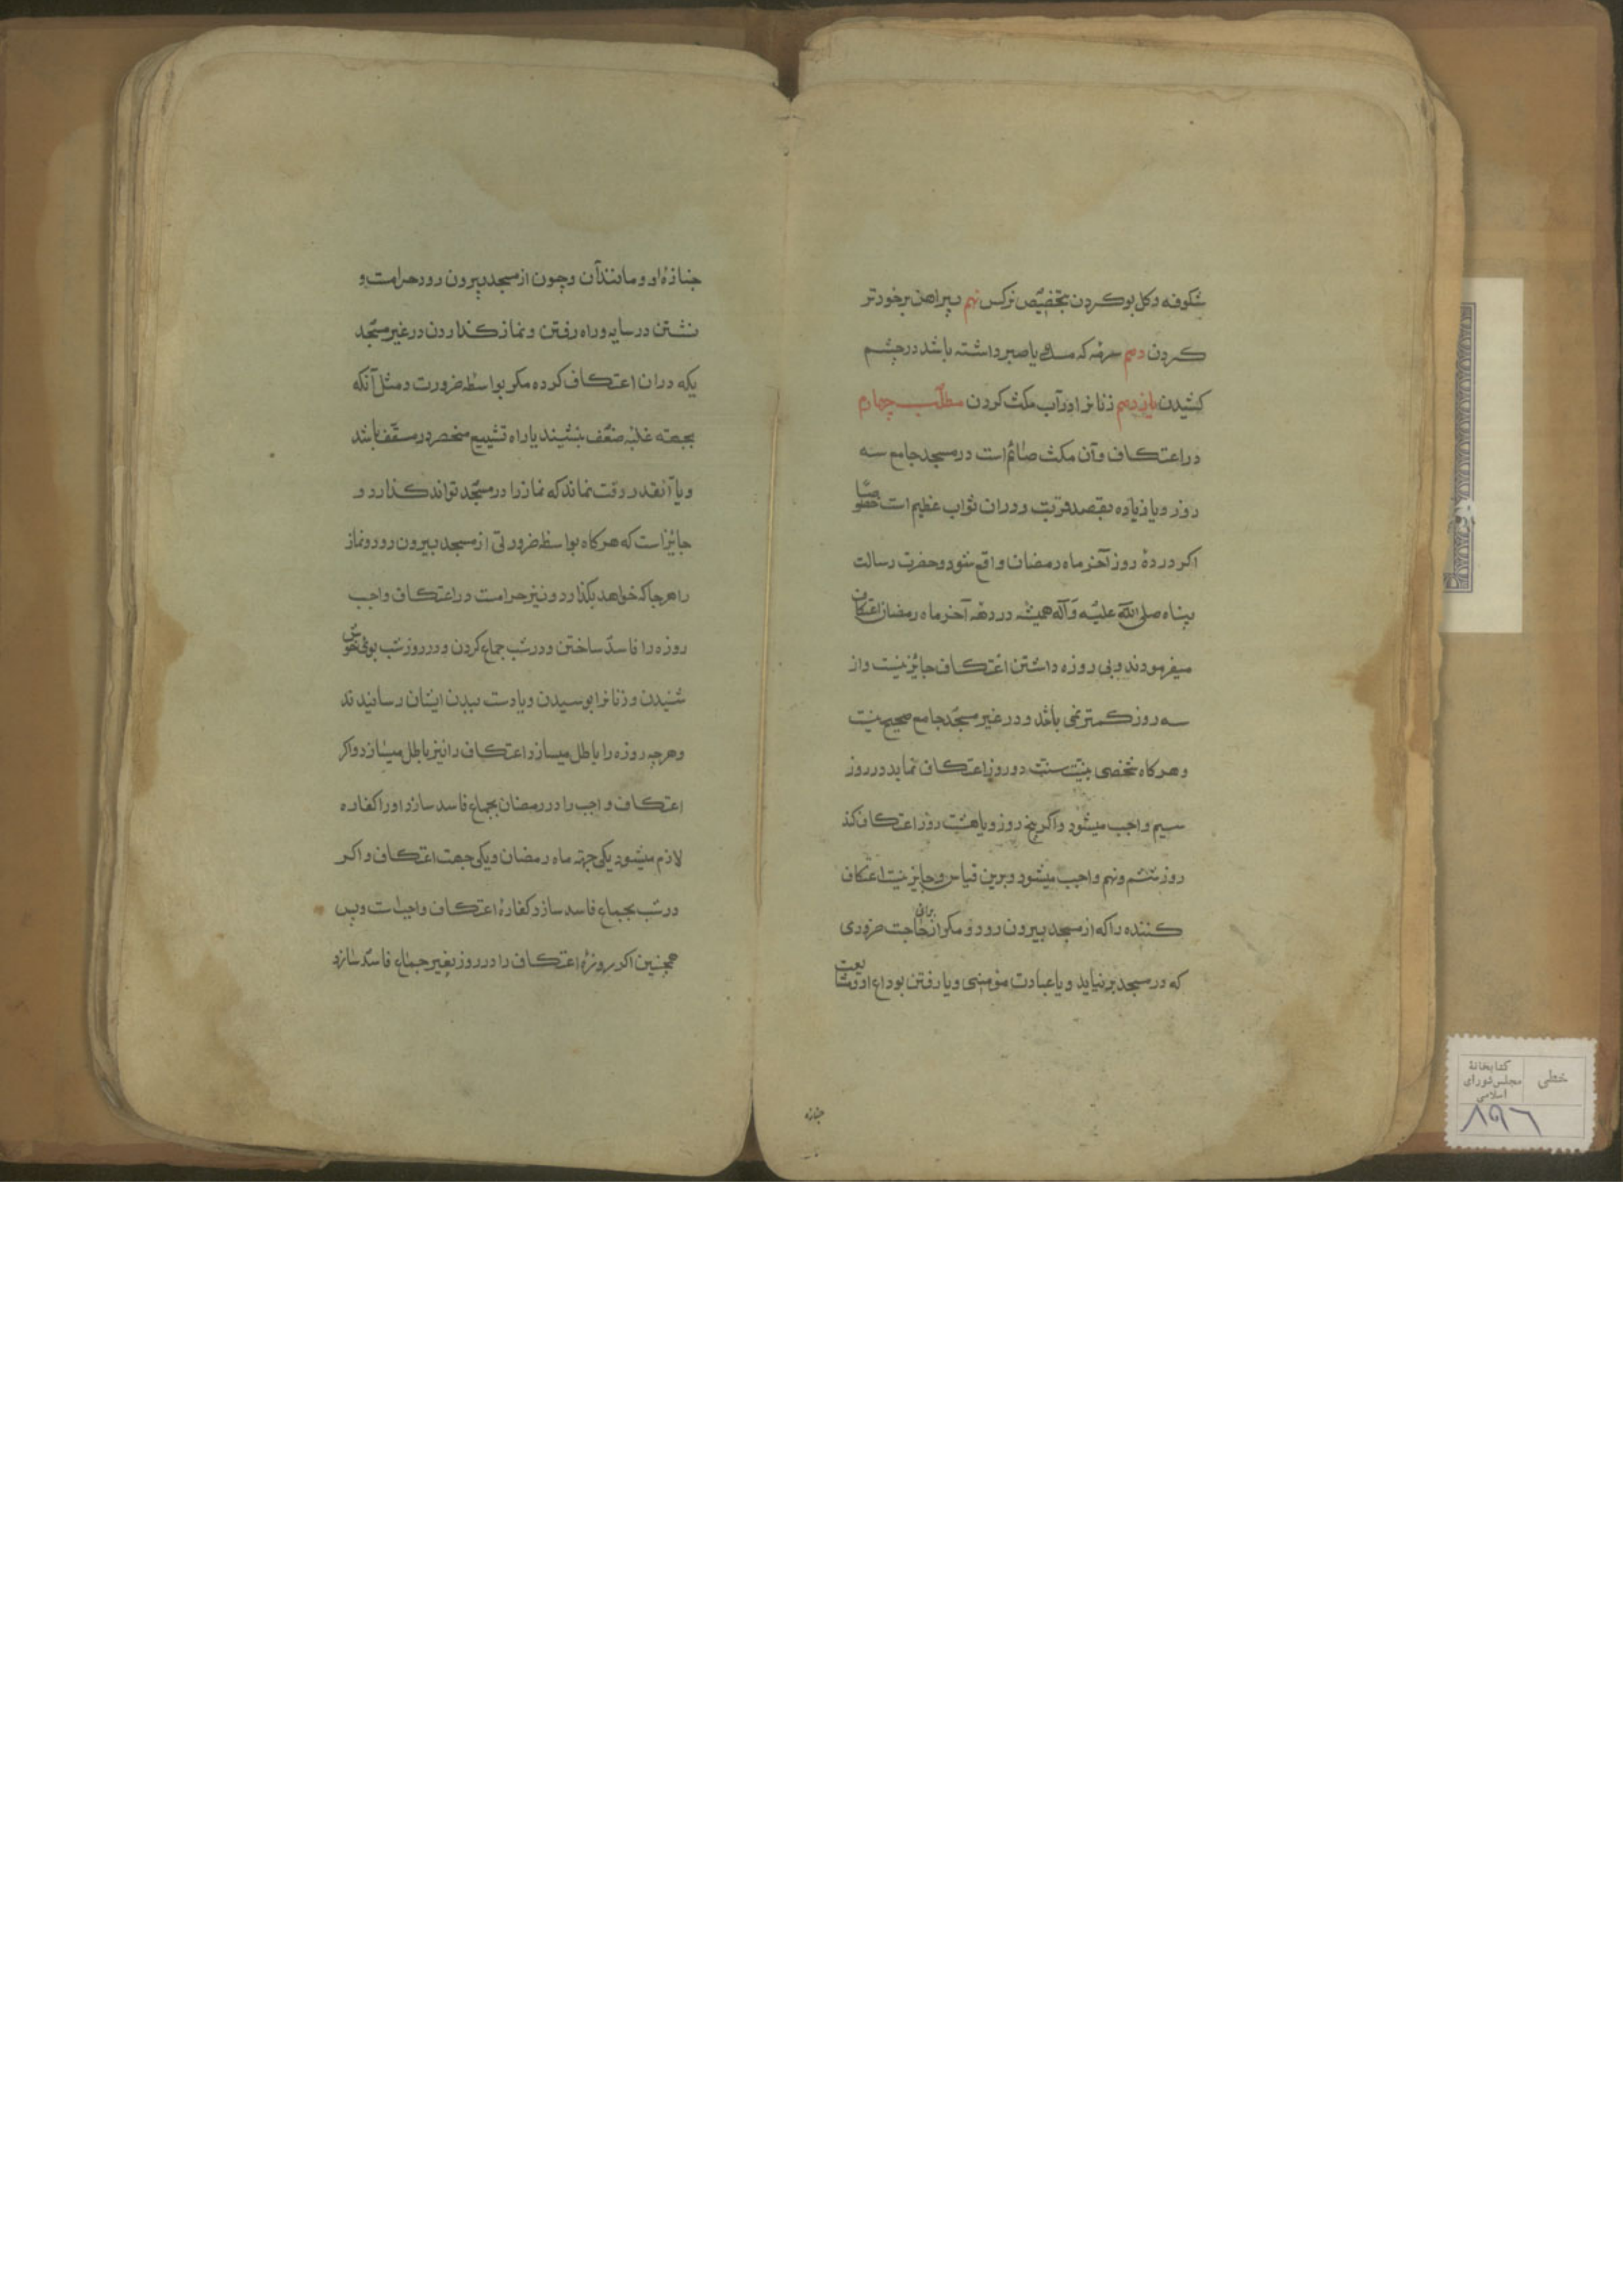 شکوفه و کل بوکردن بتخصیص نرکس نهم پیراهن برخود تر
کردن دهم سرمه که مشک یا صبر داشته باشد در چشم
کشیدن یازدهم زنانرا در آب مکث کردن مطلب چهارم
در اعتکاف و آن مکث صائم است در مسجد جامع سه
روز و یا زیاده بقصد قربت و دران ثواب عظیم است خصوصا
اکر در دهٔ روز آخر ماه رمضان واقع شود و حضرت رسالت
پناه صلی الله علیه و آله همیشه در دهه آخر ماه رمضان اعتکاف
میفرمودند و بی روزه داشتن اعتکاف جایز نیست و از
سه روز کمتر نمی باشد و در غیر مسجد جامع صحیح نیست
و هرکاه شخصی بنیت سنت دو روز اعتکاف نماید در روز
سیم واجب میشود و اکر پنج روز و یا هشت روز اعتکاف کند
روز ششم و نهم واجب میشود و برین قیاس و جایز نیست اعتکاف
کننده را که از مسجد بیرون رود و مکر از برای حاجت ضروری
که در مسجد بر نیاید و یا عیادت مؤمنی و یا رفتن بوداع او و مشایعت
جنازه
جنازهٔ او و مانند آن و چون از مسجد بیرون رود حرامست و
نشستن در سایه و راه رفتن و نماز کذاردن در غیر مسجد
یکه دران اعتکاف کرده مکر بواسطه ضرورت و مثل آنکه
بجهته غلبه ضعف بنشیند یا راه تشییع منحصر در مسقف باشد
و یا آنقدر وقت نماند که نماز را در مسجد تواند کذارد و
جایز است که هرکاه بواسطه ضرورتی از مسجد بیرون رود و نماز
را هرجا که خواهد بکذارد و نیز حرامست در اعتکاف واجب
روزه را فاسد ساختن و در شب جماع کردن و در روز شب بوی خوش
شنیدن و زنانرا بوسیدن و یا دست ببدن ایشان رسانیدند
و هرچه روزه را باطل میسازد اعتکاف را نیز باطل میسازد و اکر
اعتکاف واجب را در رمضان بجماع فاسد سازد او را کفاره
لازم میشود یکی جهته ماه رمضان و یکی جهت اعتکاف و اکر
در شب بجماع فاسد سازد کفارهٔ اعتکاف واجبست و بس
همچنین اکر روزهٔ اعتکاف را در روز بغیر جماع فاسد سازد
خطی
کتابخانهٔ
مجلس شورای
اسلامی
۸۹۶